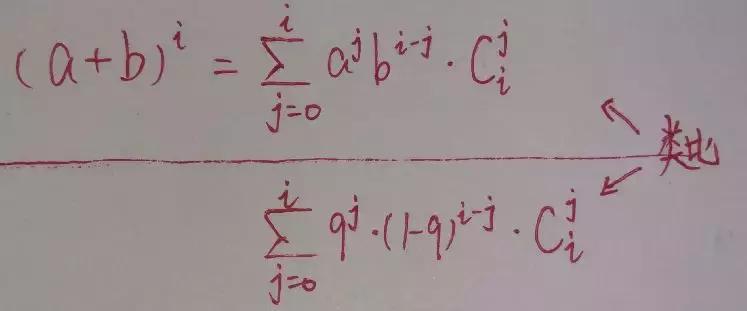 (a+b)^i = \sum_{j=0}^{i} a^j b^{i-j} · C_i^j
类比
\sum_{j=0}^{i} q^j · (1-q)^{i-j} · C_i^j